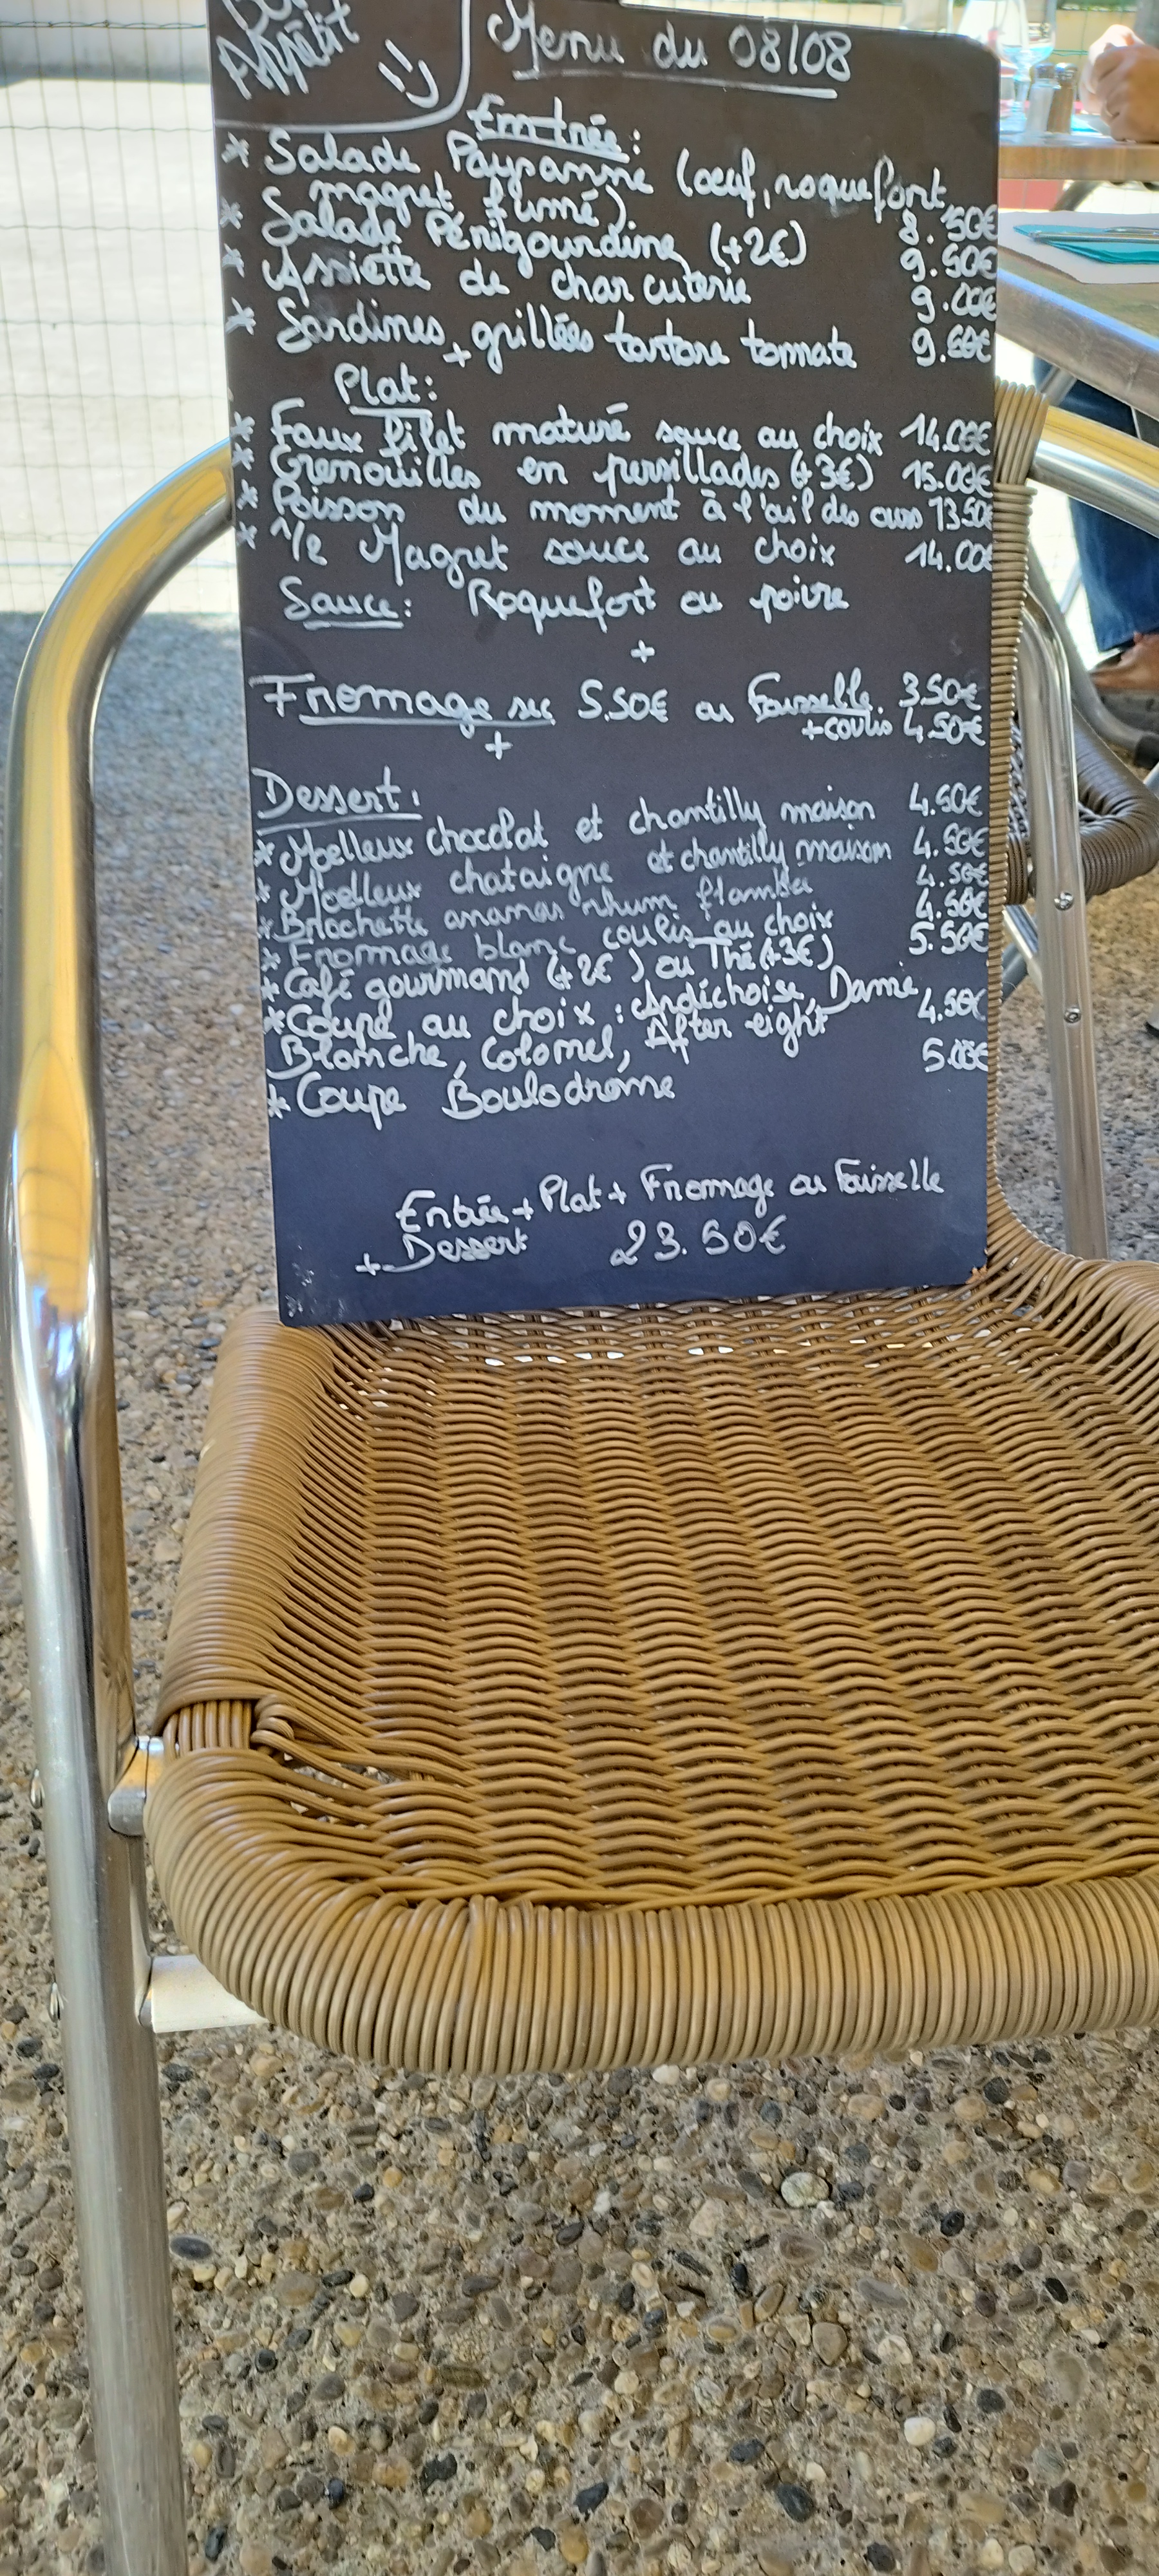 Bon
Appétit
:)
Menu du 08/08
Entrée:
* Salade Paysanne (œuf, roquefort,
magret fumé). 8.50€
* Salade Périgourdine (+2€) 9.50€
* Assiette de charcuterie 9.00€
* Sardines grillées tartare tomate 9.50€
+
Plat:
* Faux filet maturé sauce au choix 14.00€
* Grenouilles en persillades (+3€) 15.00€
* Poisson du moment à l'ail des ours 13.50€
* 1/2 Magret sauce au choix 14.00€
Sauce: Roquefort ou poivre
+
Fromage sec 5.50€ ou Faisselle 3.50€
+coulis 4.50€
+
Dessert:
* Moelleux chocolat et chantilly maison 4.50€
* Moelleux chataigne et chantilly maison 4.50€
* Brochette ananas rhum flambée 4.50€
* Fromage blanc coulis au choix 4.50€
* Café gourmand (+2€) ou Thé (+3€) 5.50€
* Coupe au choix : Ardéchoise, Dame
Blanche, Colonel, After eight 4.50€
* Coupe Boulodrome 5.00€
Entrée + Plat + Fromage ou Faisselle
+ Dessert 23.50€